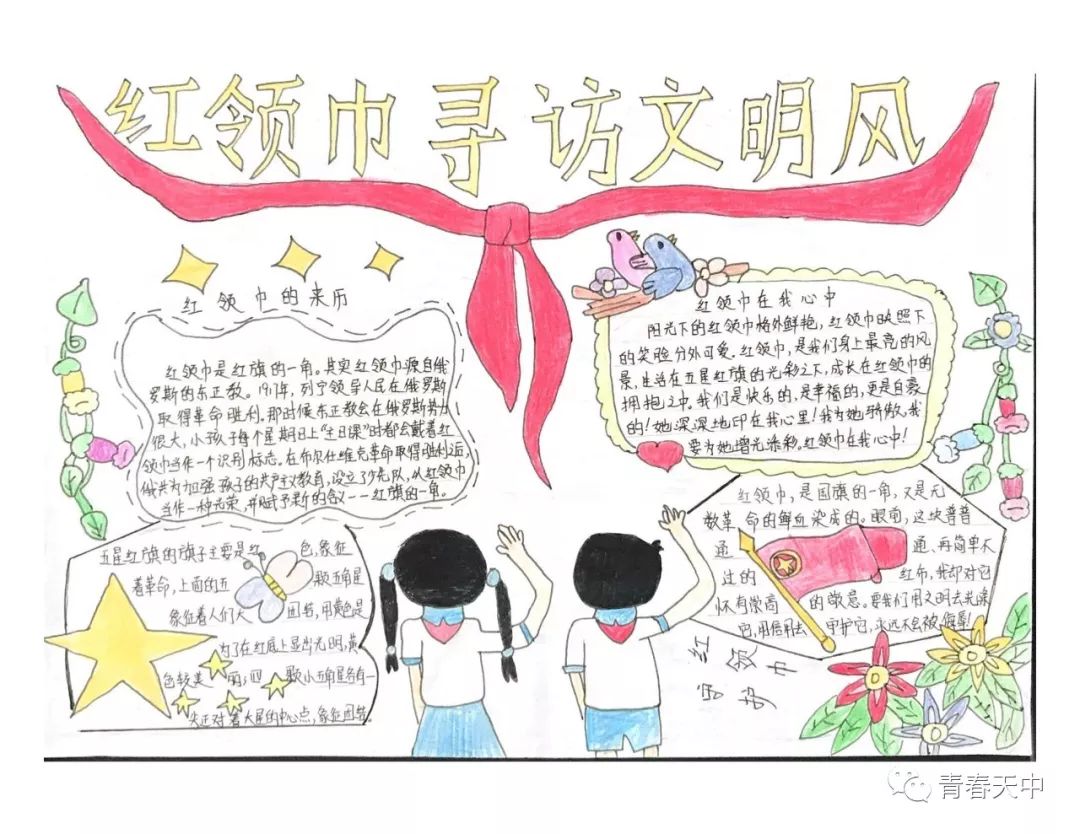 红领巾寻访文明风
红领巾的来历
红领巾是红旗的一角。其实红领巾源自俄
罗斯的东正教。1917年,列宁领导人民在俄罗斯
取得革命胜利。那时候东正教会在俄罗斯势力
很大,小孩子每个星期日上“主日课”时都会戴着红
领巾当作一个识别标志。在布尔什维克革命取得胜利之后,
俄共为加强孩子的共产主义教育,设立了少先队,以红领巾
当作一种光荣,并赋予新的含义--红旗的一角。
红领巾在我心中
阳光下的红领巾格外鲜艳,红领巾映照下
的笑脸分外可爱.红领巾,是我们身上最亮的风
景,生活在五星红旗的光彩之下,成长在红领巾的
拥抱之中。我们是快乐的,是幸福的,更是自豪
的!她深深地印在我心里!我为她骄傲,我
要为她增光添彩。红领巾在我心中!
五星红旗的旗子主要是红色,象征
着革命,上面的五颗五角星
象征着人们大团结,用黄色是
为了在红底上显出光明,黄
色较美丽;四颗小五角星各有一
尖正对着大星的中心点,象征团结.
红领巾,是国旗的一角,又是无
数革命的鲜血染成的。眼前,这块普普
通通、再简单不
过的红布,我却对它
怀有崇高的敬意。要我们用文明去
它,用信用去守护它,永远不会被
红领巾
寻访
青春天中